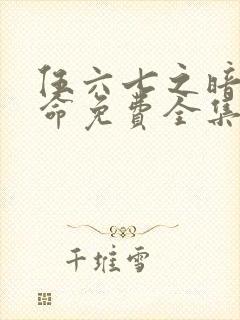 伍六七之暗
命免费全集
千堆雪